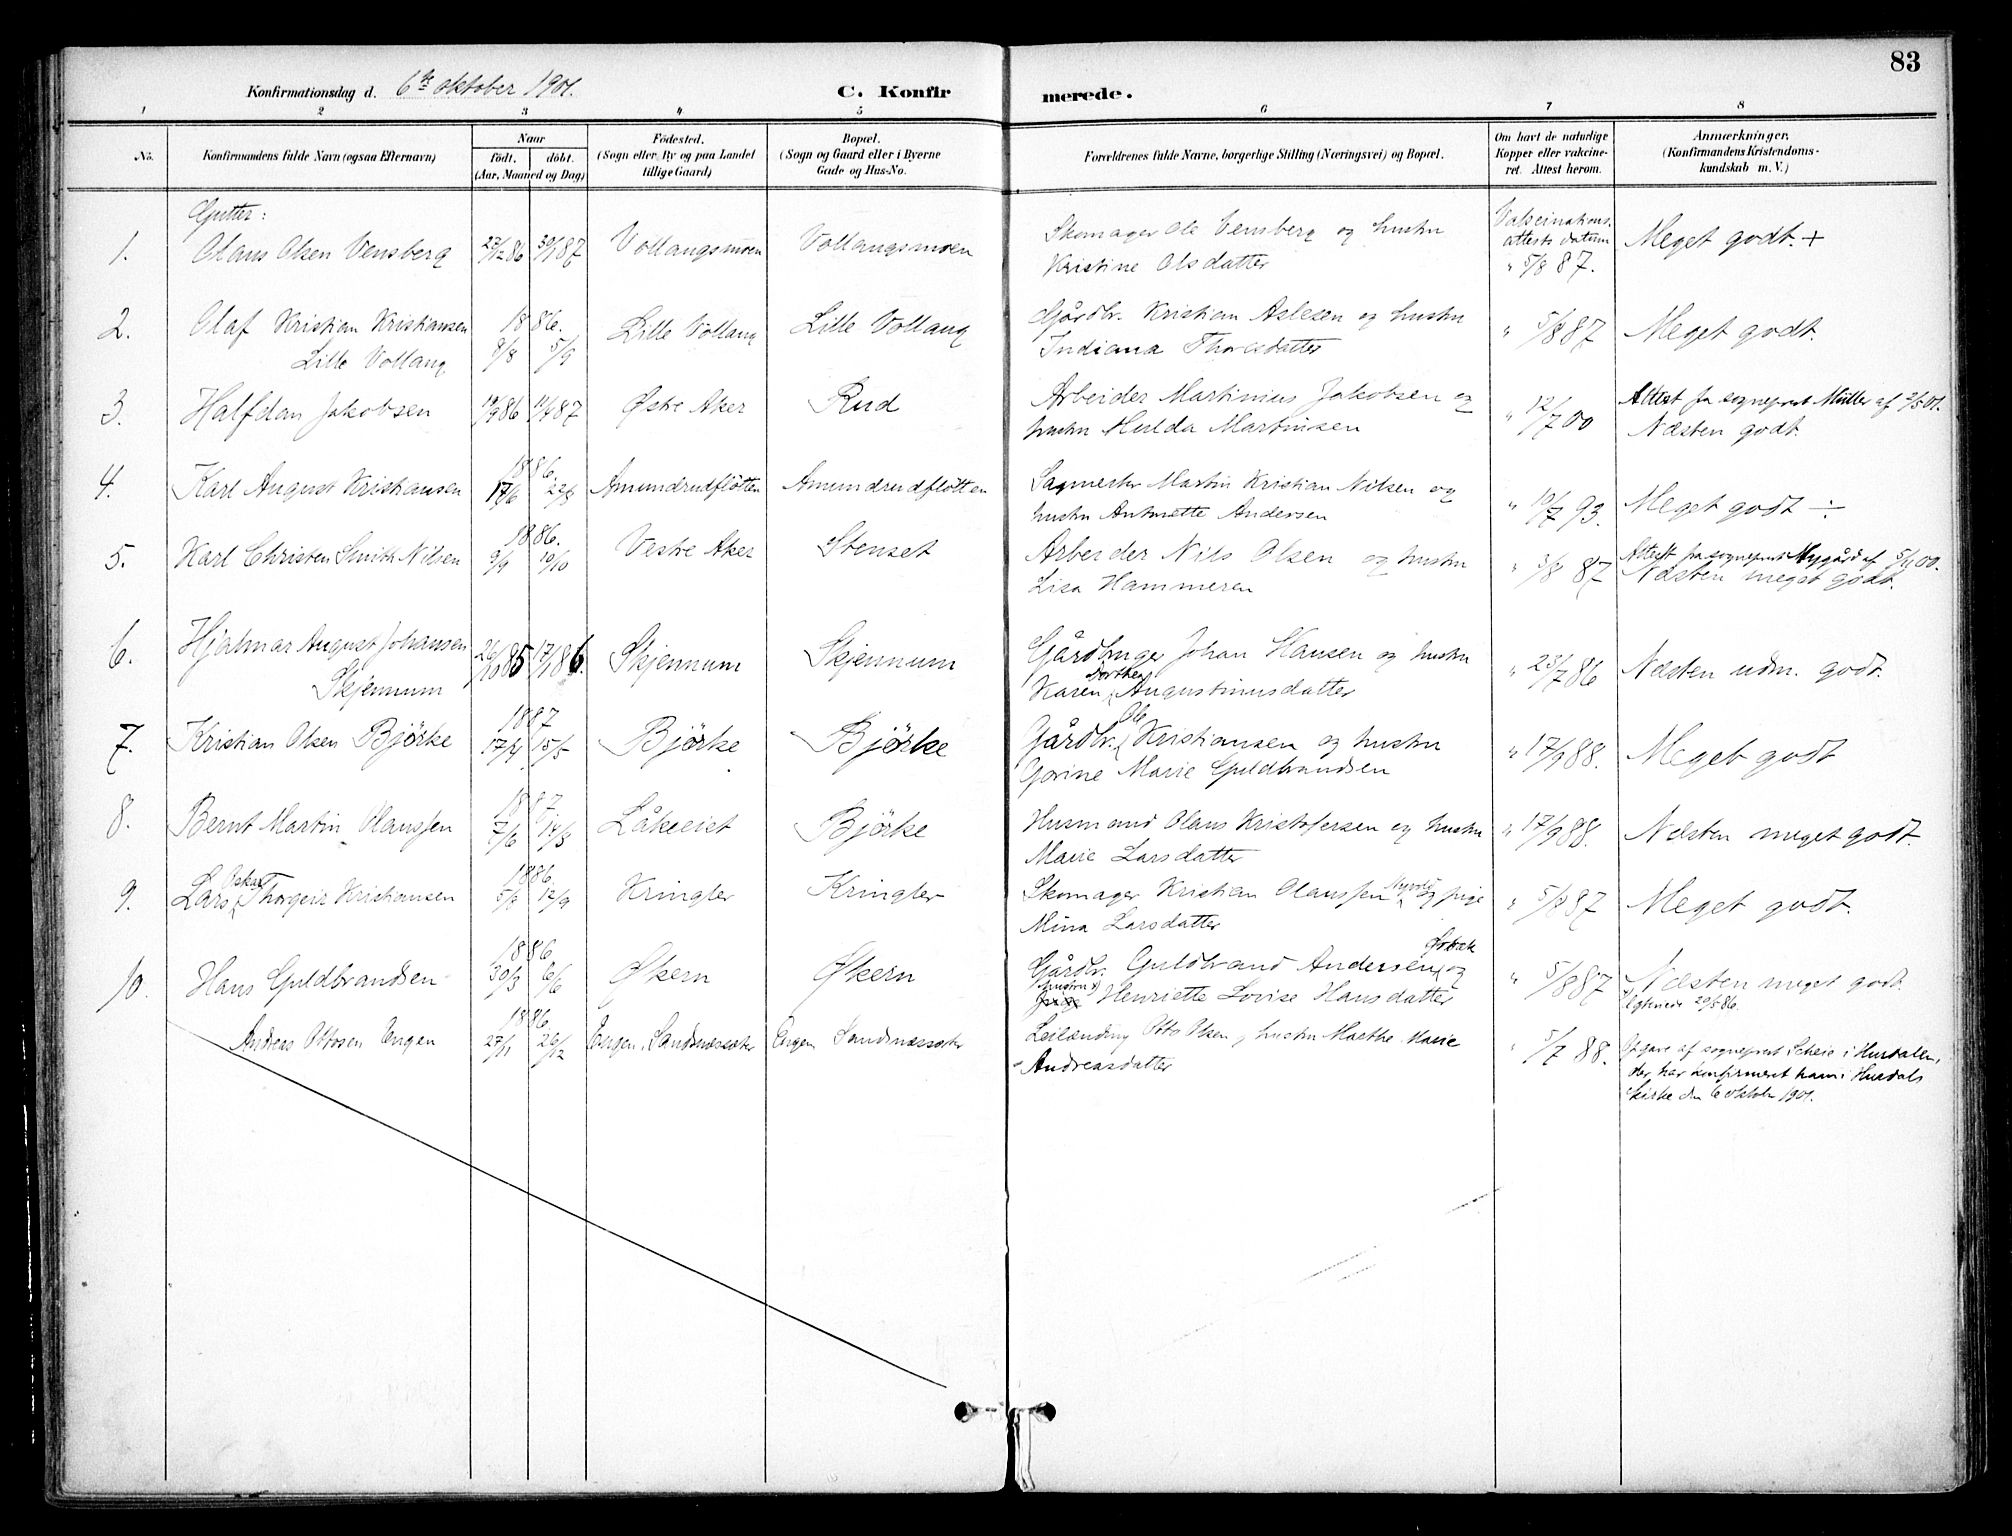 83
Konfirmationsdag d. 6te oktober 1901.
C. Konfirmerede.
1 2 3 4 5 6 7 8
No.
Konfirmandens fulde Navn (ogsaa Efternavn)
Naar
födt. döbt.
(Aar, Maaned og Dag)
Födested.
(Sogn eller By og paa Landet
tillige Gaard)
Bopæl.
(Sogn og Gaard eller i Byerne
Gade og Hus-No.
Forældrenes fulde Navne, borgerlige Stilling (Næringsvei) og Bopæl.
Om havt de naturlige
Kopper eller vakcine-
ret. Attest herom.
Anmærkninger.
(Konfirmandens Kristendoms-
kundskab m. V.)
Gutter:
1. Olaus Olsen Vensberg 27/12 86 30/1 87 Vollangsmoen Vollangsmoen Skomager Ole Vensberg og hustru
Kristine Olsdatter
Vakcinations.
attests datum
" 5/8 87. Meget godt. +
2. Olaf Kristian Kristiansen
Lille Vollang 1886. 9/8 5/9 Lille Vollang Lille Vollang Gårdbr. Kristian Aslesen og hustru
Indiana Thoresdatter " 5/8 87 Meget godt.
3. Halfdan Jakobsen 19/9 86 11/4 87 Østre Aker Rud Arbeider Martinius Jakobsen og
hustru Hulda Martinisen " 12/7 00 Attest fra sogneprest Müller af 2/5 01.
Næsten godt.
4. Karl August Kristiansen 1886. 17/6 22/8 Amundrudfløtten Amundrudfløtten Sagmester Martin Kristian Nilsen og
hustru Antonette Andersen " 10/7 93. Meget godt ÷
5. Karl Christen Smith Nilsen 1886. 2/9 10/10 Vestre Aker Stenset Arbeider Nils Olsen og hustru
Lisa Hammeren " 3/8 87 Attest fra sogneprest Nygård af 5/11 00.
Næsten meget godt.
6. Hjalmar August Johansen
Skjennum 26/10 85 17/1 86. Skjennum Skjennum Gårdbruger Johan Hansen og hustru
Karen Dorthea Augustinusdatter " 23/7 86 Næsten udm. godt.
7. Kristian Olsen Björke 1887 17/4 15/5 Björke Björke Gårdbr. Ole Kristiansen og hustru
Gorine Marie Guldbrandsen " 17/9 88. Meget godt
8. Bernt Martin Olaussen 1887 7/6 14/8 Låkeeiet Björke Husmand Olaus Kristofersen og hustru
Marie Larsdatter " 17/9 88. Næsten meget godt.
9. Lars Oskar Thorgeir Kristiansen 1886. 5/8 12/9 Kringler Kringler Skomager Kristian Olaussen Nyvold og pige
Mina Larsdatter " 5/8 87 Meget godt.
10. Hans Guldbrandsen 1886 30/3 6/6 Økern Økern Gårdbr. Guldbrand Andersen Ørbæk og
hustru Henriette Lovise Hansdatter " 5/8 87 Næsten meget godt.
Ægtviede 29/5 86.
Andreas Ottosen Engen 1886 27/11 26/12 Engen, Sandsnæssæter Engen Sandsnæssæter Leilænding Otto Olsen, hustru Marthe Marie
Andreasdatter " 5/7 88. Opgave af sogneprest Scheie i Hurdalen,
der har konfirmeret ham i Hurdals
kirke den 6 oktober 1901.